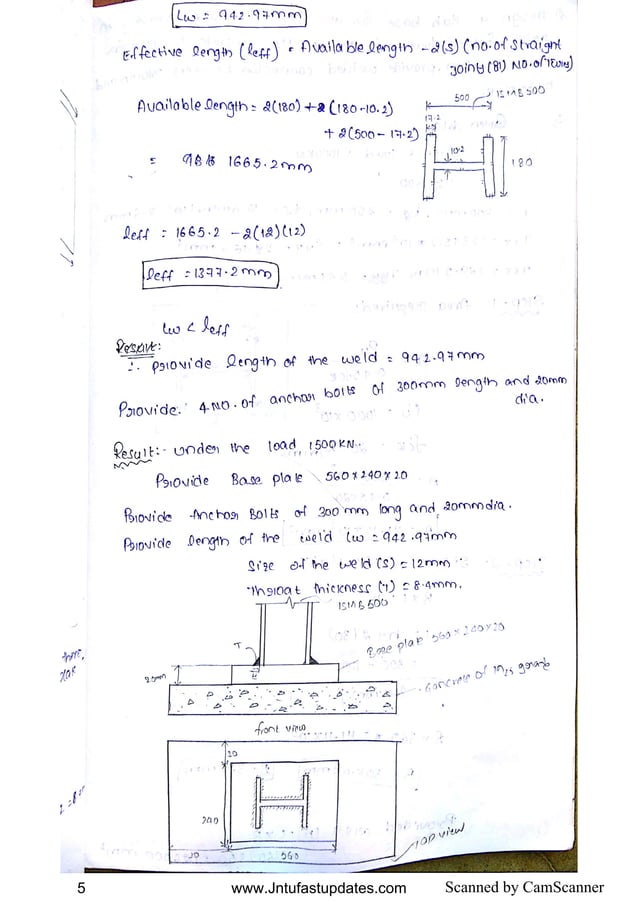 Lw = 942.97mm
Effective length (leff) = Available length - 2(s) (no. of straight
joints (or) No. of Turns)
Available length = 2(180) + 2(180-10.2)
+ 2(500-17.2)
= 1665.2mm
500
ISMB 500
17.2
10.2
180
leff = 1665.2 - 2(12)(12)
leff = 1377.2mm
Lw < leff
Result:
∴ provide length of the weld = 942.97mm
Provide 4 NO. of anchor bolts of 300mm length and 20mm
dia.
Result:- under the load 1500KN.
Provide Base plate 560×240×20
Provide Anchor Bolts of 300mm long and 20mm dia.
Provide length of the weld Lw = 942.97mm
Size of the weld (s) = 12mm
Throat thickness (T) = 8.4mm.
ISMB 500
T
Base plate 560×240×20
20mm
concrete of M25 grade
front view
240
560
Top view
5
www.Jntufastupdates.com
Scanned by CamScanner